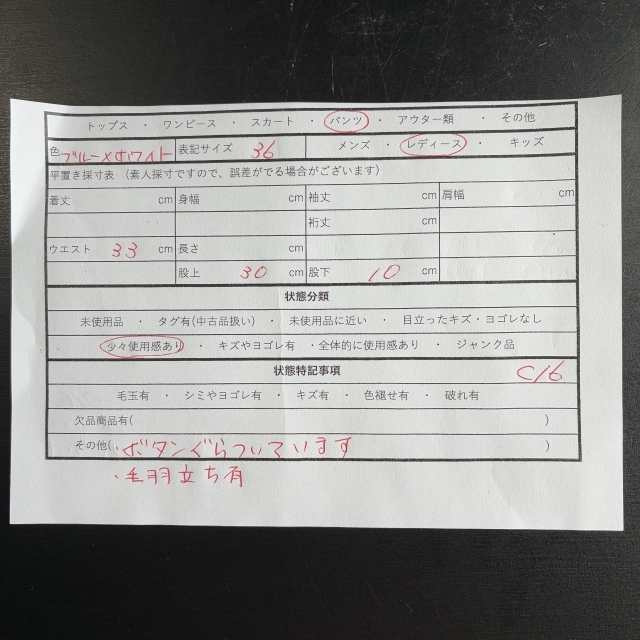 トップス ・ ワンピース ・ スカート ・ パンツ ・ アウター類 ・ その他
色 ブルー×ホワイト 表記サイズ 36 メンズ ・ レディース ・ キッズ
平置き採寸表 (素人採寸ですので、誤差がでる場合がございます)
着丈 cm 身幅 cm 袖丈 cm 肩幅 cm
裄丈 cm
ウエスト 33 cm 長さ cm
股上 30 cm 股下 10 cm
状態分類
未使用品 ・ タグ有(中古品扱い) ・ 未使用品に近い ・ 目立ったキズ・ヨゴレなし
少々使用感あり ・ キズやヨゴレ有 ・全体的に使用感あり ・ ジャンク品
状態特記事項 C16
毛玉有 ・ シミやヨゴレ有 ・ キズ有 ・ 色褪せ有 ・ 破れ有
欠品商品有( )
その他(・ボタンぐらついています )
・毛羽立ち有